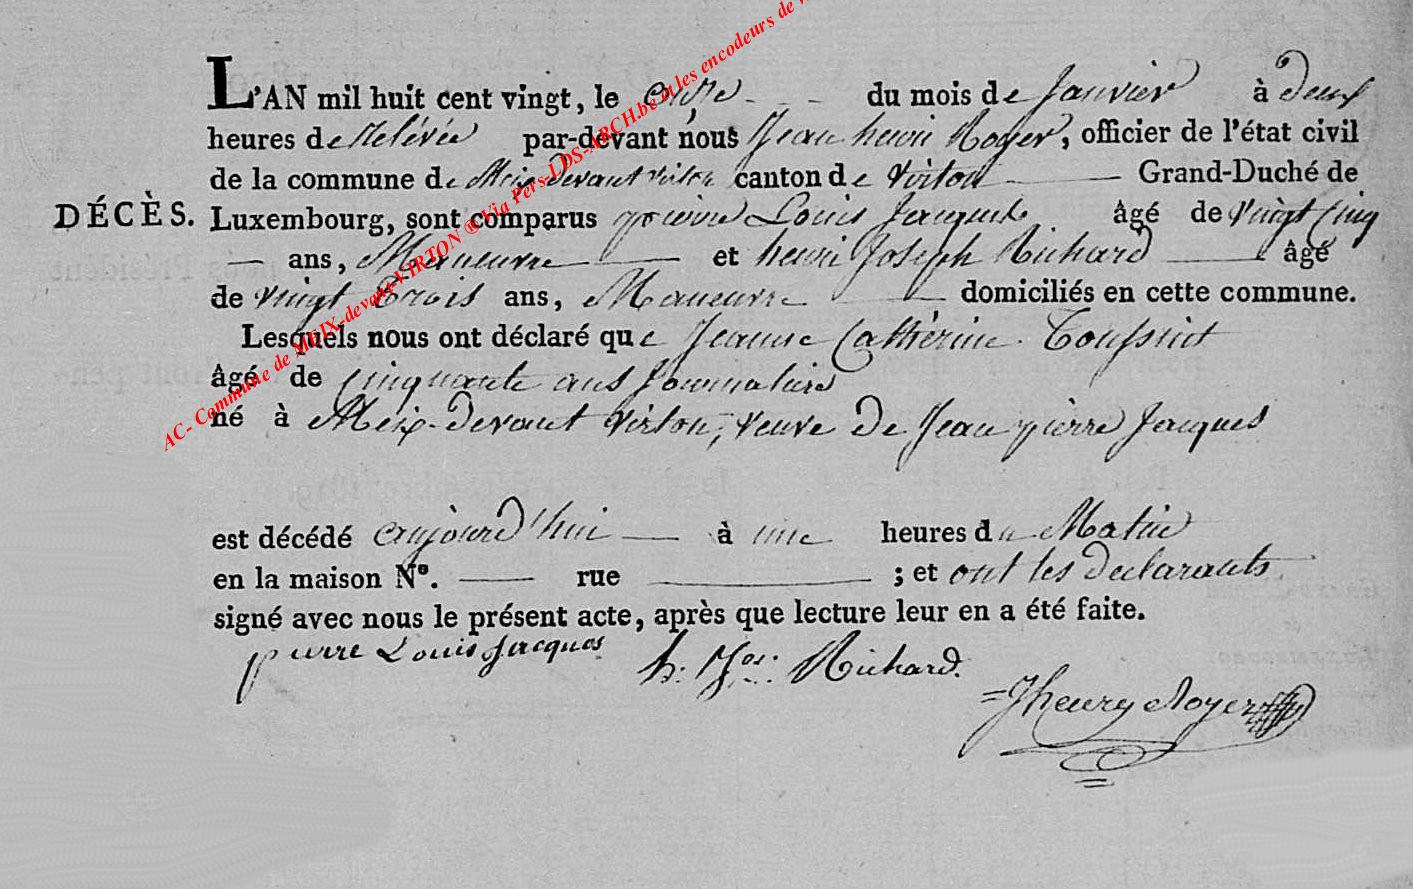 L'AN mil huit cent vingt, le onze du mois de Janvier à deux
heures de relévée par-devant nous Jean henri Royer, officier de l'état civil
de la commune de Meix devant virton canton de virton Grand-Duché de
DÉCÈS. Luxembourg, sont comparus pierre Louis Jacques âgé de vingt cinq
ans, Maneuvre et henri Joseph Richard âgé
de vingt trois ans, Maneuvre domiciliés en cette commune.
Lesquels nous ont déclaré que Jeanne Catherine Toussint
âgé de cinquante ans Journaliere
né à Meix-devant virton, veuve de Jean pierre Jacques
est décédé aujourd'hui à une heures du Matin
en la maison N°. rue ; et ont les declarants
signé avec nous le présent acte, après que lecture leur en a été faite.
pierre Louis Jacques h: Jos: Richard.
Jhenry Royer
AC- Commune de MEIX-devant-VIRTON ® Via Pers-LDS-ARCH.be et les encodeurs de